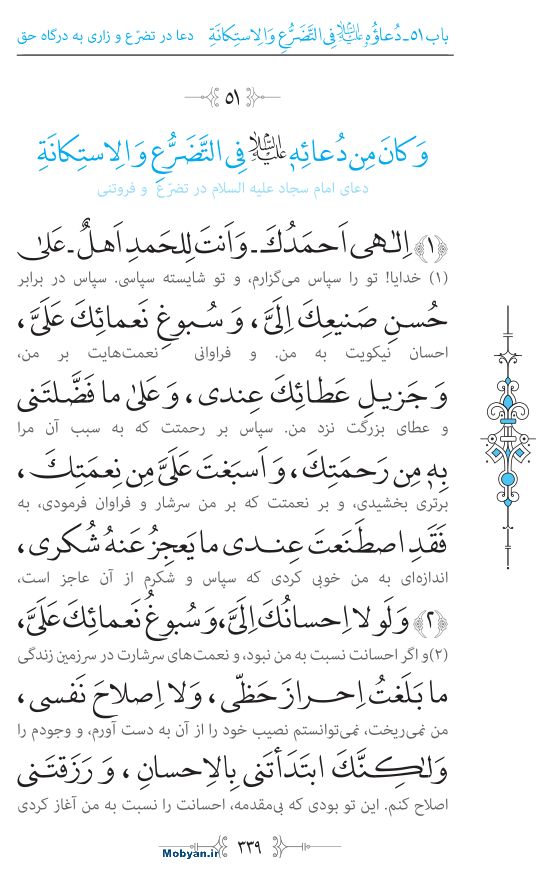 باب ۵۱ـ دُعاؤُهُ عَلَيْهِ السَّلامُ فِی التَّضَرُّعِ وَالِاستِكانَةِ دعا در تضرّع و زاری به درگاه حق
۵۱
وَ كانَ مِن دُعائِهٖ عَلَيْهِ السَّلامُ فِی التَّضَرُّعِ وَ الِاستِكانَةِ
دعای امام سجاد علیه السلام در تضرّع و فروتنی
﴿۱﴾ اِلٰهی اَحمَدُكَ ـ وَ اَنتَ لِلحَمدِ اَهلٌ ـ عَلیٰ
(۱) خدایا! تو را سپاس می‌گزارم، و تو شایسته سپاسی. سپاس در برابر
حُسنِ صَنیعِكَ اِلَیَّ، وَ سُبوغِ نَعمائِكَ عَلَیَّ،
احسان نیکویت به من. و فراوانی نعمت‌هایت بر من،
وَ جَزیلِ عَطائِكَ عِندی، وَ عَلیٰ ما فَضَّلتَنی
و عطای بزرگت نزد من. سپاس بر رحمتت که به سبب آن مرا
بِهٖ مِن رَحمَتِكَ، وَ اَسبَغتَ عَلَیَّ مِن نِعمَتِكَ،
برتری بخشیدی، و بر نعمتت که بر من سرشار و فراوان فرمودی، به
فَقَدِ اصطَنَعتَ عِندی ما یَعجِزُ عَنهُ شُكری،
اندازه‌ای به من خوبی کردی که سپاس و شکرم از آن عاجز است،
﴿۲﴾ وَ لَو لا اِحسانُكَ اِلَیَّ، وَ سُبوغُ نَعمائِكَ عَلَیَّ،
(۲) و اگر احسانت نسبت به من نبود، و نعمت‌های سرشارت در سرزمین زندگی
ما بَلَغتُ اِحرازَ حَظّی، وَ لا اِصلاحَ نَفسی،
من نمی‌ریخت، نمی‌توانستم نصیب خود را از آن به دست آورم، و وجودم را
وَ لٰكِنَّكَ ابتَدَأتَنی بِالاِحسانِ، وَ رَزَقتَنی
اصلاح کنم. این تو بودی که بی‌مقدمه، احسانت را نسبت به من آغاز کردی
۳۳۹
Mobyan.ir